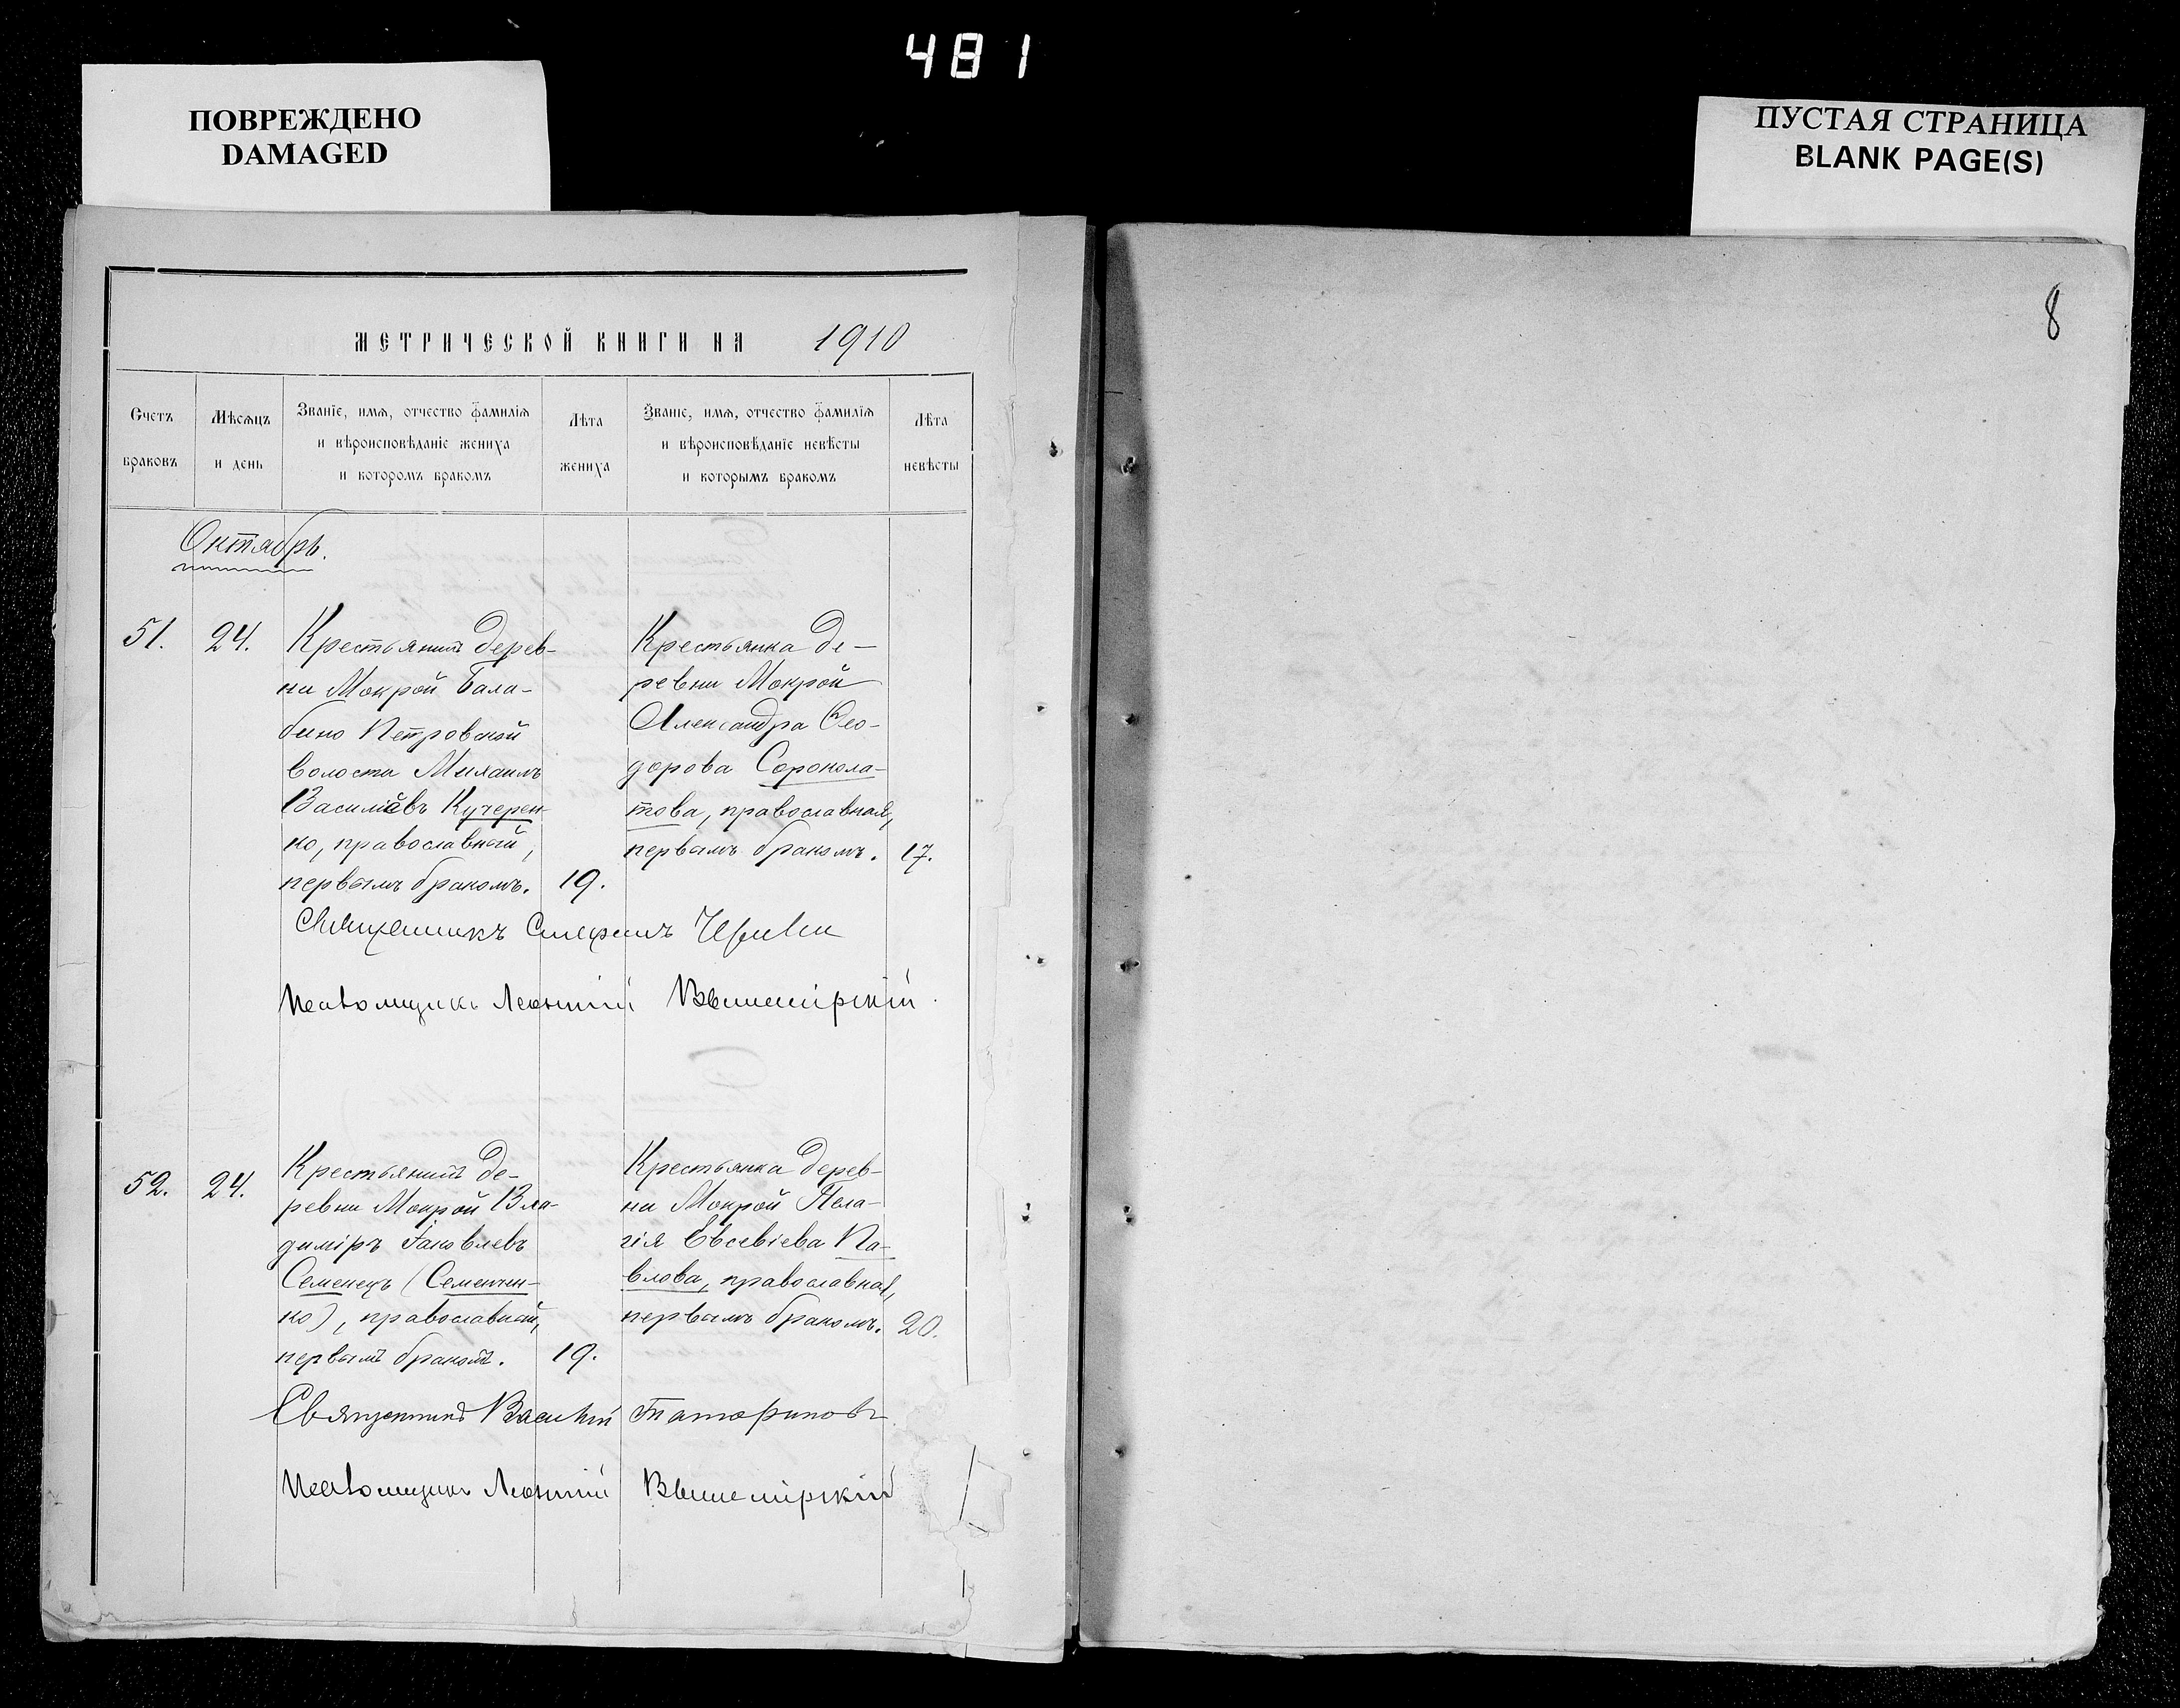 481
ПОВРЕЖДЕНО
DAMAGED
ПУСТАЯ СТРАНИЦА
BLANK PAGE(S)
8
МЕТРИЧЕСКОЙ КНИГИ НА 1910
Счетъ
браковъ
Мѣсяцъ
и день
Званіе, имя, отчество фамилія
и вѣроисповѣданіе жениха
и которомъ бракомъ
Лѣта
жениха
Званіе, имя, отчество фамилія
и вѣроисповѣданіе невѣсты
и которымъ бракомъ
Лѣта
невѣсты
Октябрь.
51.
24.
Крестьянинъ дерев-
ни Мокрой Бала-
бино Петровской
волости Михаилъ
Василіевъ Кучерен-
ко, православный,
первымъ бракомъ.
19.
Крестьянка де-
ревни Мокрой
Александра Ѳео-
дорова Сорокола-
това, православная,
первымъ бракомъ.
17.
Священникъ
Псаломщикъ Леонтій Вышемірскій
52.
24.
Крестьянинъ де-
ревни Мокрой Вла-
диміръ Іаковлевъ
Семенецъ (Семенчен-
ко), православный,
первымъ бракомъ.
19.
Крестьянка дерев-
ни Мокрой Пела-
гія Евсевіева Па-
влова, православная,
первымъ бракомъ.
20.
Священникъ Василій Татариновъ
Псаломщикъ Леонтій Вышемірскій